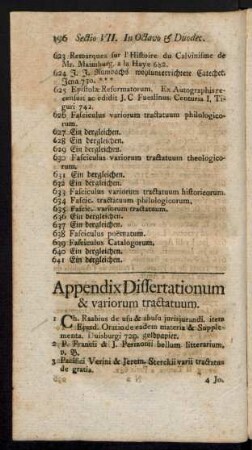 196 Sectio VII. In Octavo & Duodec.
623 Remarques sur l'Histoire du Calvinisme de
Mr. Maimburg, a la Haye 682.
624 J. J. Rambachs wolunterrichtete Catechet.
Jena 730. ***
625 Epistolæ Reformatorum. Ex Autographis re-
censuit ac edidit J. C Fueslinus. Centuria I, Ti-
guri 742.
626 Fasciculus variorum tractatuum philologico-
rum.
627 Ein bergleichen.
628 Ein bergleichen.
629 Ein bergleichen.
630 Fasciculus variorum tractatuum theologico-
rum.
631 Ein bergleichen.
632 Ein bergleichen.
633 Fasciculus variorum tractatuum historicorum.
634 Fascic. tractatuum philologicorum.
635 Fascic. variorum tractatuum.
636 Ein bergleichen.
637 Ein bergleichen.
638 Fasciculus poëtatum.
639 Fasciculus Catalogorum.
640 Ein bergleichen.
641 Ein bergleichen.
Appendix Dissertationum
& variorum tractatuum.
1 Ch. Raabius de usu & abusu jurisjurandi. item
Ejusd. Oratio de eadem materia & Supple-
menta. Duisburgi 729. gelbpapier.
2 P. Francii & J. Perizonii bellum litterarium,
3 Pacifici Verini & Jerem. Sterckii varii tractatus
de gratia.
4 Jo.